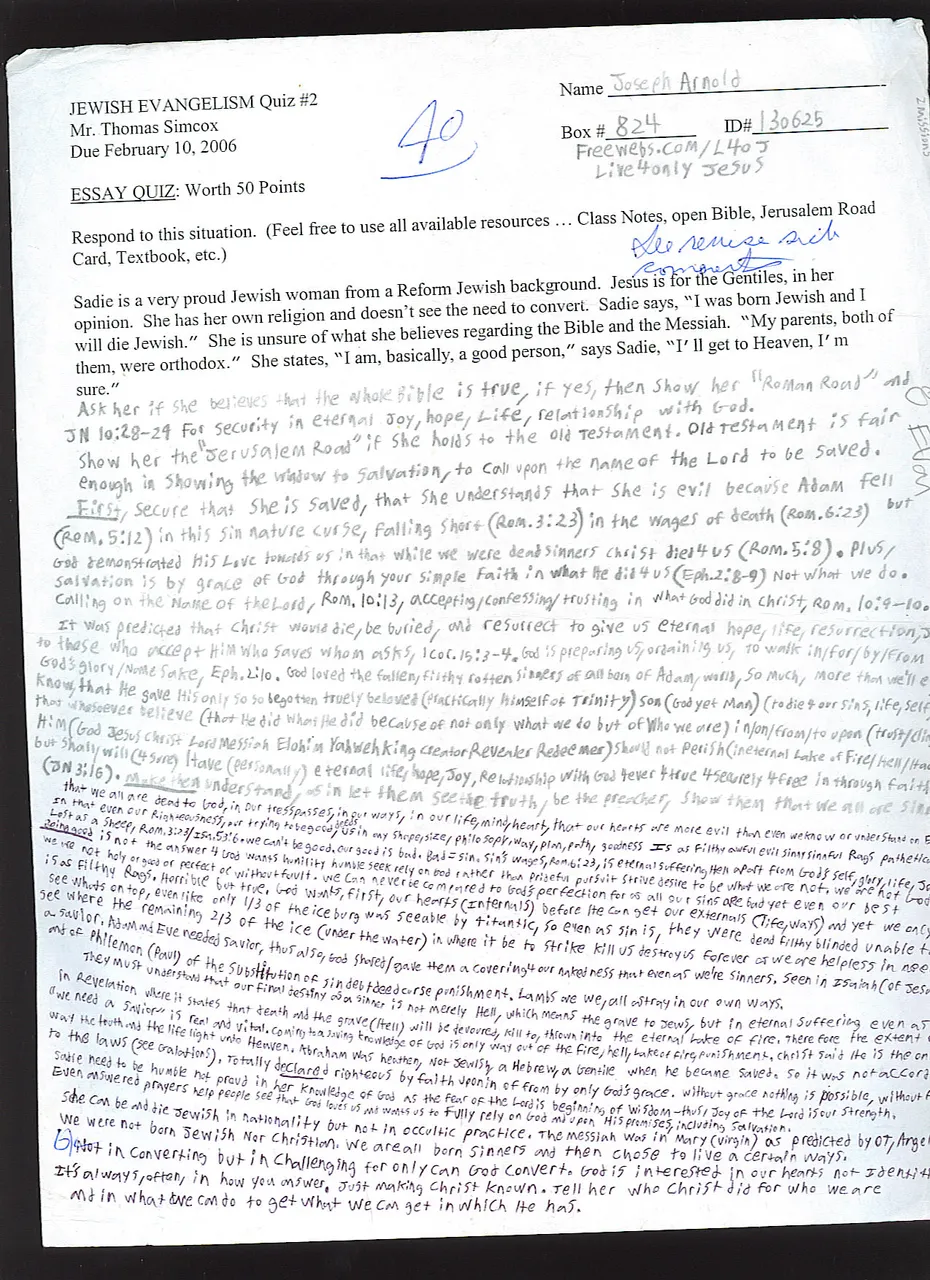 JEWISH EVANGELISM Quiz #2
Mr. Thomas Simcox
Due February 10, 2006
Name Joseph Arnold
Box # 824 ID# 130625
Freewebs.com/L4oJ
Live4only Jesus
40
ESSAY QUIZ: Worth 50 Points
Respond to this situation. (Feel free to use all available resources … Class Notes, open Bible, Jerusalem Road
Card, Textbook, etc.)
See reverse side
comments
Sadie is a very proud Jewish woman from a Reform Jewish background. Jesus is for the Gentiles, in her
opinion. She has her own religion and doesn't see the need to convert. Sadie says, "I was born Jewish and I
will die Jewish." She is unsure of what she believes regarding the Bible and the Messiah. "My parents, both of
them, were orthodox." She states, "I am, basically, a good person," says Sadie, "I'll get to Heaven, I'm
sure."
Ask her if she believes that the whole Bible is true, if yes, then show her "Roman Road" and
JN 10:28-29 for security in eternal Joy, hope, Life, relationship with God.
Show her the "Jerusalem Road" if she holds to the Old Testament. Old Testament is fair
enough in showing the window to Salvation, to call upon the name of the Lord to be saved.
First, secure that she is saved, that she understands that she is evil because Adam fell
(Rom. 5:12) in this sin nature curse, falling short (Rom. 3:23) in the wages of death (Rom. 6:23) but
God demonstrated His Love towards us in that while we were dead sinners Christ died 4 us (Rom. 5:8). Plus/
salvation is by grace of God through your simple faith in what He did 4 us (Eph. 2:8-9) Not what we do.
Calling on the Name of the Lord, Rom. 10:13, accepting/confessing/trusting in what God did in Christ, Rom. 10:9-10.
It was predicted that Christ would die, be buried, and resurrect to give us eternal hope, life, resurrection,
to those who accept Him who saves whom asks, 1 Cor. 15:3-4. God is preparing us, ordaining us, to walk in/for/by/from
God's glory/Name sake, Eph. 2:10. God loved the fallen, filthy rotten sinners of all born of Adam/world, so much, more than we'll
know, that He gave His only so so begotten truely beloved (practically Himself of Trinity) Son (God yet Man) (to die 4 our sins, life, self
that whosoever believe (that He did what He did because of not only what we do but of who we are) in/on/from/to upon (trust/
Him (God Jesus Christ Lord Messiah Elohim Yahweh King Creator Revealer Redeemer) should not Perish (in eternal Lake of Fire/Hell/
but shall/will (4 sure) have (personally) eternal life, hope, Joy, Relationship with God 4ever 4 true 4 securely 4 free in through
(JN 3:16). Make them understand, as in let them see the truth, be the preacher, show them that we all are
that we all are dead to God, in our tresspasses, in our ways, in our life, mind, heart, that our hearts are more evil than even we know or understand
In that even our Righteousness, our trying to be good deeds, us in any shape, size, philosophy, way, plan, path, goodness is as filthy awful evil sinny sinnful Rags
Lost as a sheep, Rom. 3:23/Isa. 53:6. we can't be good, our good is bad. Bad = sin. Sin's wages, Rom 6:23, is eternal suffering, Hen apart from God's self, glory, life,
Doing good is not the answer 4 God wants humility humble seek rely on God rather than prideful pursuit strive desire to be what we are not, we are not God
we are not holy or good or perfect or without fault. We can never be compared to God's perfection for as all our sins are bad yet even our best
is as Filthy Rags. Horrible but true, God wants, first, our hearts (internals) before He can get our externals (life, ways) and yet we only
see whats on top, even like only 1/3 of the iceburg was seeable by titantic, so even as sin is, they were dead filthy blinded unable
see where the remaining 2/3 of the ice (under the water) in where it be to strike kill us destroy us forever as we are helpless in
a savior. Adam and Eve needed savior, thus also, God shared/gave them a covering 4 our nakedness that even as we're sinners, seen in Isaiah
and of Philemon (Paul) of the substitution of sin debt deed curse punishment. Lambs are we, all astray in our own ways.
They must understand that our final destiny as a sinner is not merely Hell, which means the grave to Jews, but in eternal suffering even as
in Revelation where it states that death and the grave (Hell) will be devoured, kill to, thrown into the eternal lake of fire. Therefore the extent
"we need a savior" is real and vital. Coming to a saving knowledge of God is only way out of the fire, hell, lake of fire, punishment. Christ said He is the
way the truth and the life light unto Heaven. Abraham was heathen, Not Jewish, a Hebrew, a Gentile when he became saved. So it was not
to the laws (see Galations), totally declared righteous by faith upon in of from by only God's grace. without grace nothing is possible,
Sadie need to be humble not proud in her knowledge of God as the fear of the Lord is beginning of wisdom - thus, Joy of the Lord is our strength.
Even answered prayers help people see that God loves us and wants us to fully rely on God and upon His promises, including Salvation.
She can be and die Jewish in nationality but not in occultic practice. The Messiah was in Mary (virgin) as predicted by OT,
We were not born Jewish Nor Christian. We are all born sinners and then chose to live a certain ways.
Not in converting but in challenging for only can God convert. God is interested in our hearts not
It's always, often, in how you answer. Just making Christ known. Tell her who Christ did for who we are
and in what we can do to get what we can get in which He has.